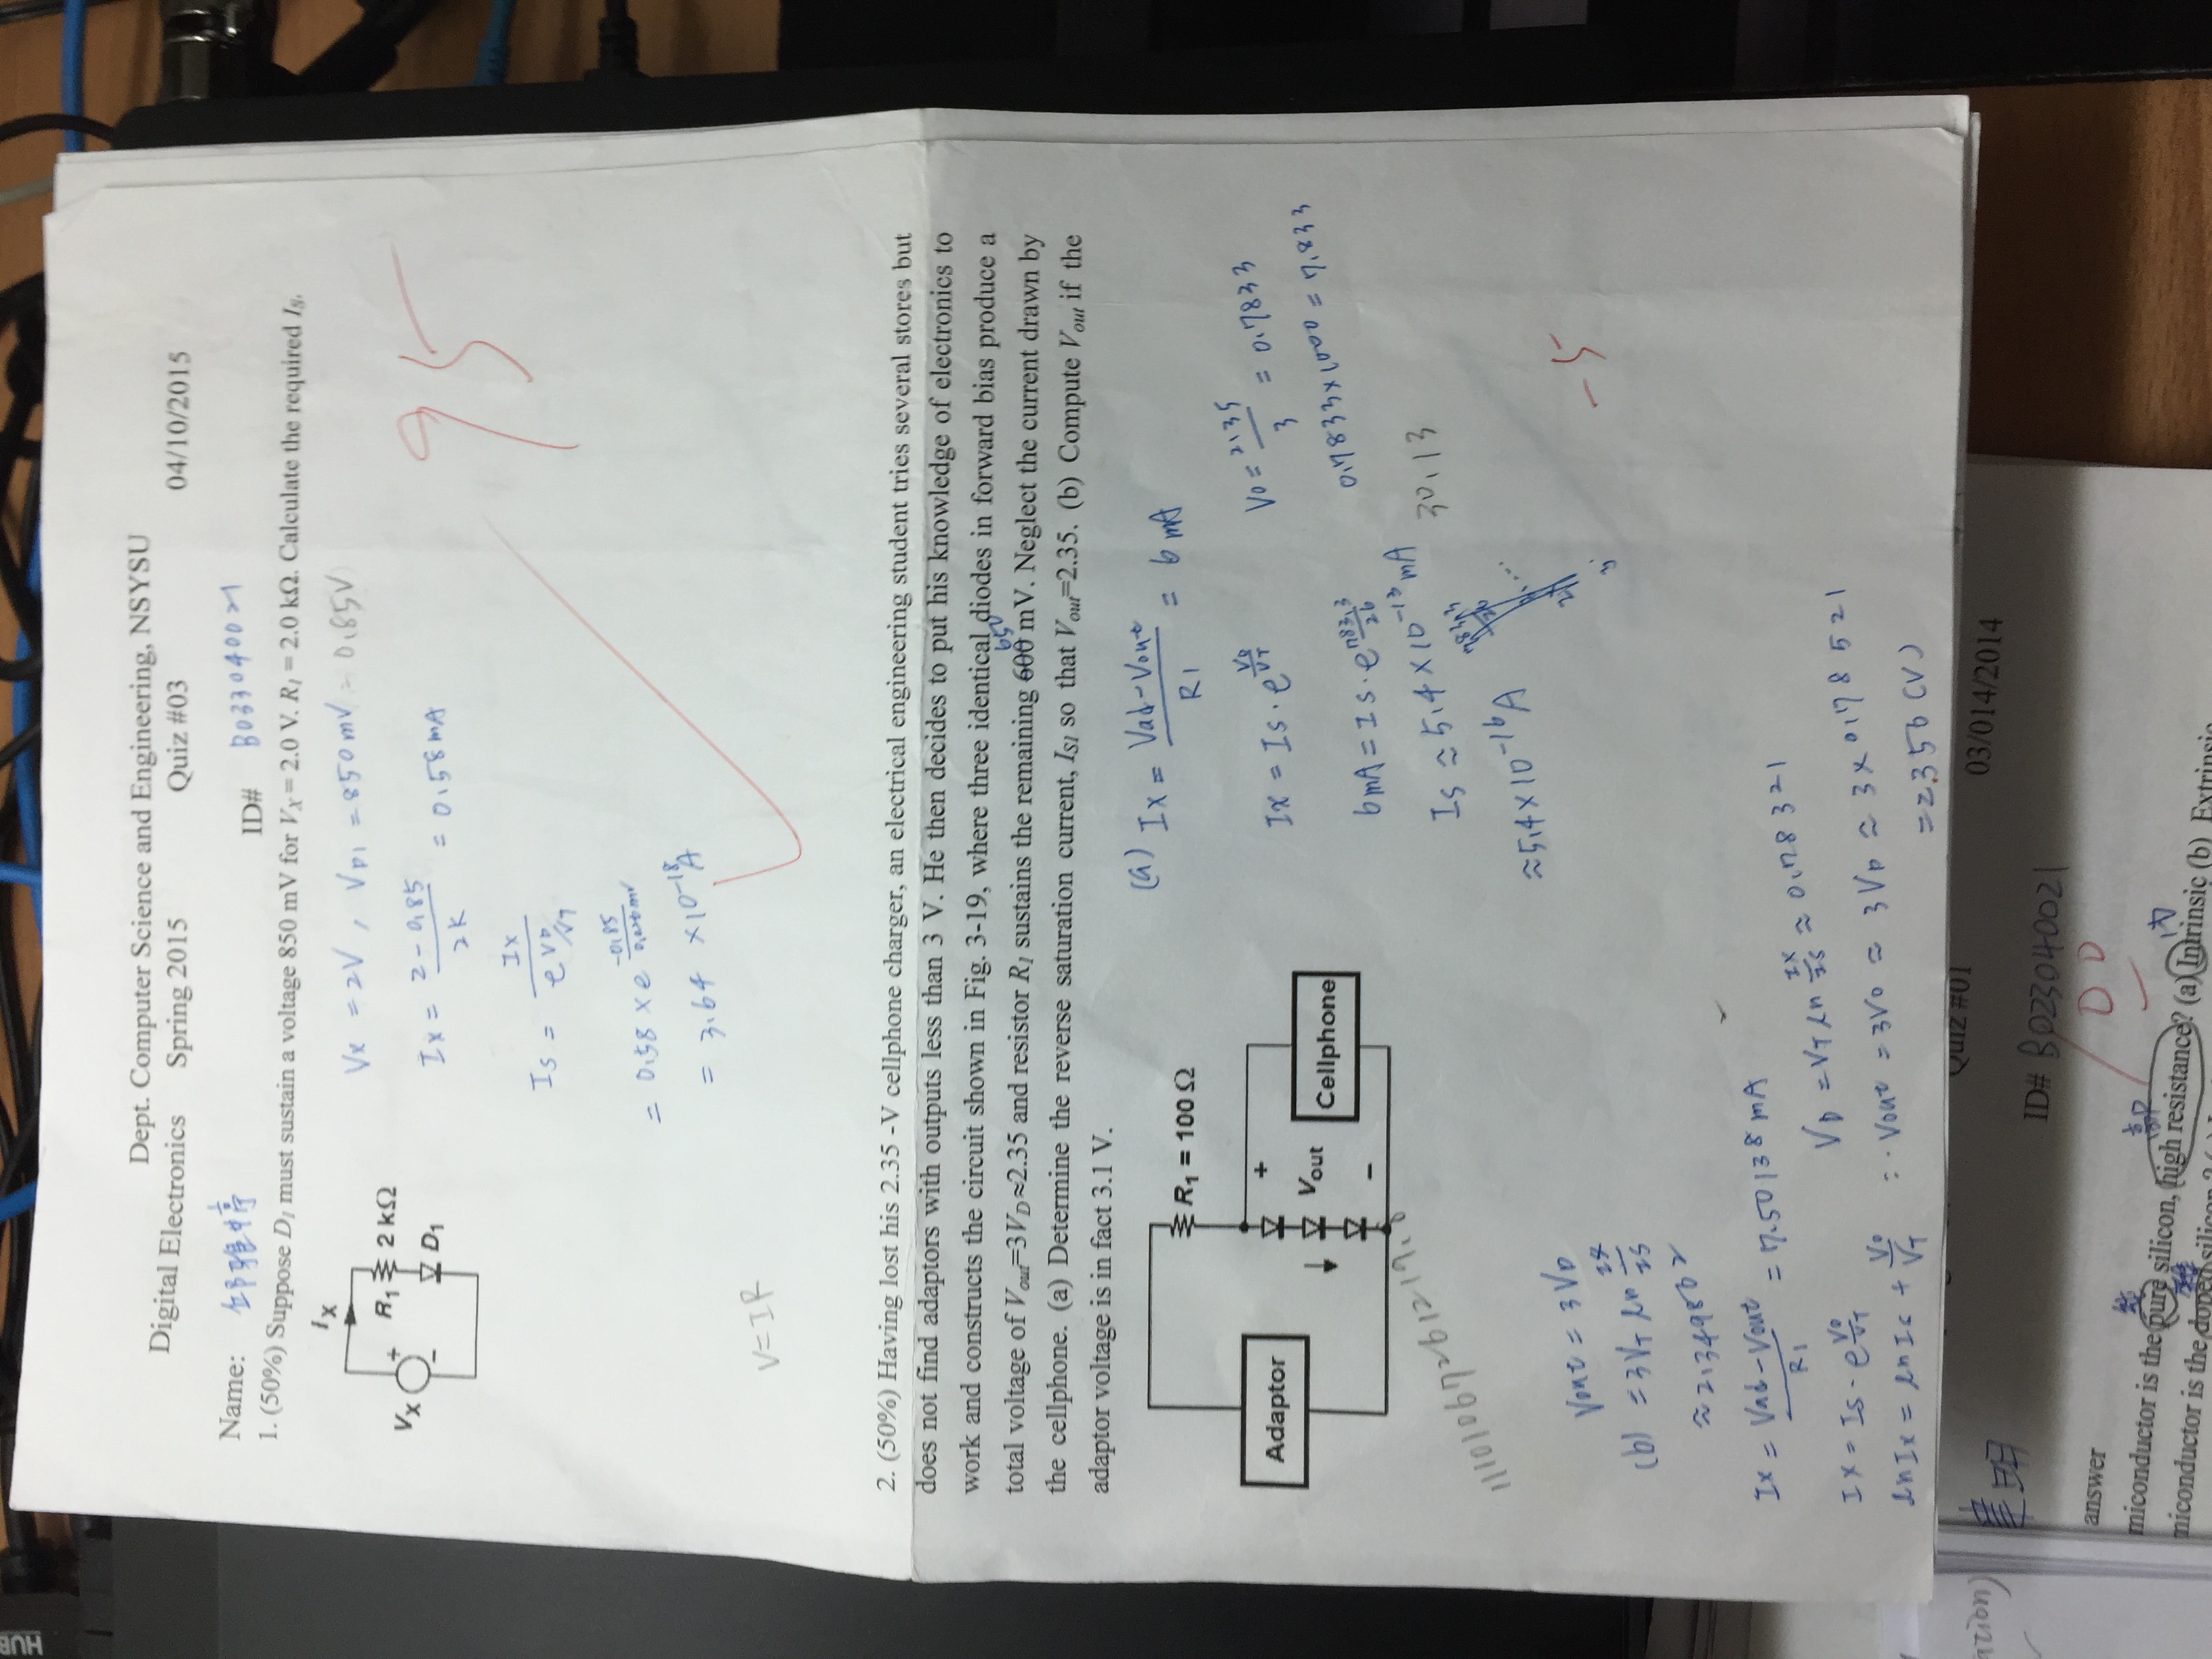 HUB
Dept. Computer Science and Engineering, NSYSU
Digital Electronics Spring 2015 Quiz #03 04/10/2015
Name: 邱雅婷 ID# B033040021
1. (50%) Suppose D1 must sustain a voltage 850 mV for VX = 2.0 V. R1 = 2.0 kΩ. Calculate the required IS.
IX
R1 2 kΩ
VX
+
−
D1
Vx = 2V , VD1 = 850mV = 0.85V
Ix = 2-0.85 / 2K = 0.58mA
95
Is = Ix / e VD/VT
= 0.58 x e -0.85/0.026mV
= 3.64 x10-18A
V=IR
2. (50%) Having lost his 2.35 -V cellphone charger, an electrical engineering student tries several stores but
does not find adaptors with outputs less than 3 V. He then decides to put his knowledge of electronics to
work and constructs the circuit shown in Fig. 3-19, where three identical diodes in forward bias produce a
650
total voltage of Vout=3VD≈2.35 and resistor R1 sustains the remaining 600 mV. Neglect the current drawn by
the cellphone. (a) Determine the reverse saturation current, IS1 so that Vout=2.35. (b) Compute Vout if the
adaptor voltage is in fact 3.1 V.
R1 = 100 Ω
Adaptor
+
Vout
−
Cellphone
(a) Ix = Vad-Vout / R1 = 6 mA
Ix = Is · e VD/VT
VD = 2.35 / 3 = 0.7833
0.7833x1000 = 7.833
6mA = Is · e 783.3/26
Is ≈ 5.4 x 10-13 mA
30.13
≈5.4x10-16 A
783.3
26
11101067261219.8
-5
Vout = 3VD
(b) = 3VT ln Ix/Is
≈ 2.349862
Ix = Vad-Vout / R1 = 7.50138 mA
VD = VT ln Ix/Is ≈ 0.78321
Ix = Is · e VD/VT
ln Ix = ln Is + VD/VT
∴ Vout = 3VD ≈ 3VD ≈ 3x0.78521
= 2.356 (V)
Quiz #01
03/014/2014
ation)
明
ID# B023040021
answer
miconductor is the pure silicon, high resistance? (a) Intrinsic (b) Extrinsic
內
miconductor is the doped silicon